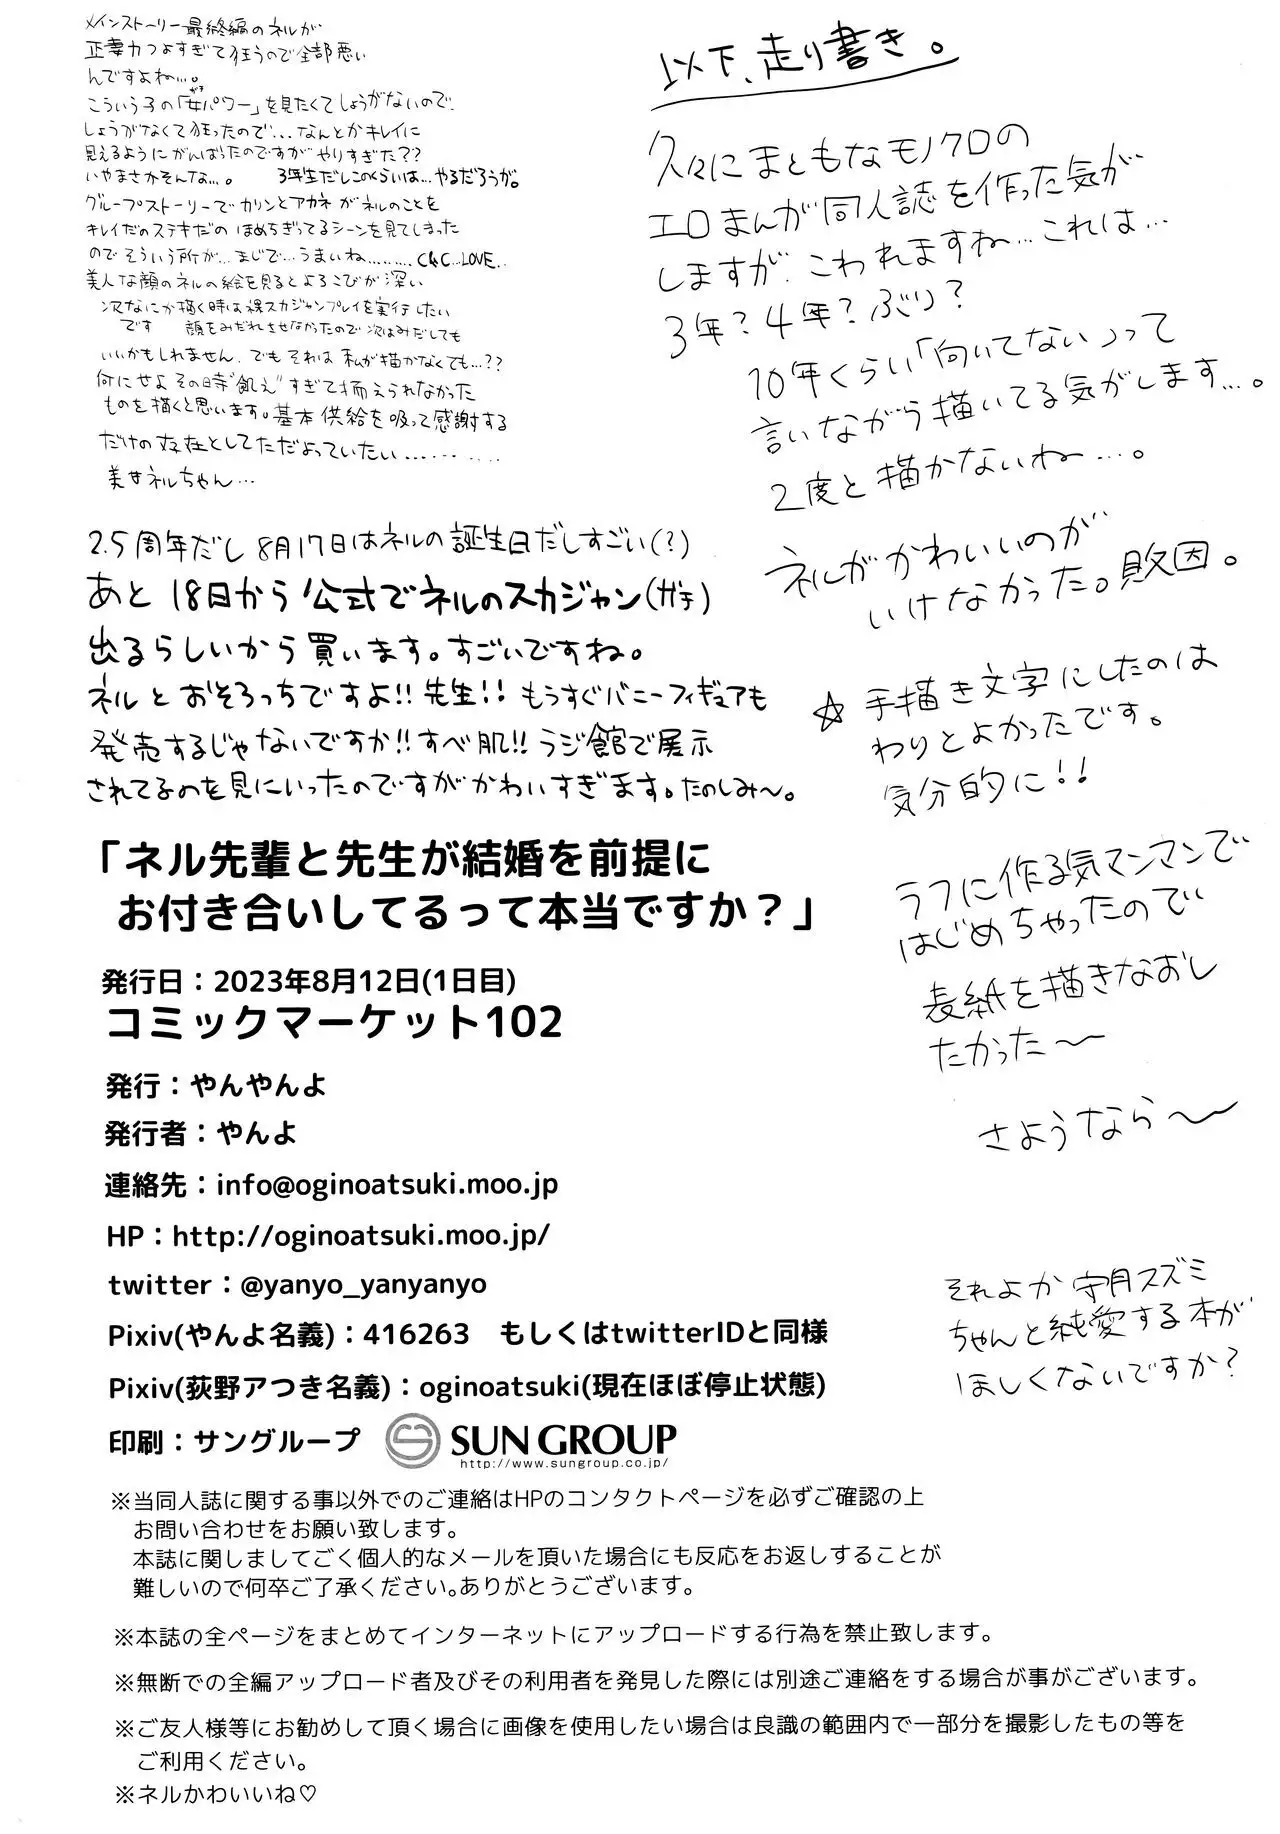 以下、走り書き。
久々にまともなモノクロの
エロまんが同人誌を作った気が
しますが、こわれますね…これは…
3年?4年?ぶり?
10年くらい「向いてない」って
言いながら描いてる気がします…。
2度と描かないね…。
ネルがかわいいのが
いけなかった。敗因。
☆手描き文字にしたのは
わりとよかったです。
気分的に!!
ラフに作る気マンマンで
はじめちゃったので
表紙を描きなおし
たかった〜
さようなら〜
それよか 守月スズミ
ちゃんと純愛する本が
ほしくないですか?
メインストーリー最終編のネルが
正妻力つよすぎて狂うので全部悪い
んですよね…。
こういう子の「女パワー」を見たくてしょうがないので、
しょうがなくて狂ったので...なんとかキレイに
見えるようにがんばったのですがやりすぎた??
いやまさかそんな…。 3年生だしこのくらいは…やるだろうが。
グループストーリーでカリンとアカネがネルのことを
キレイだのステキだのほめちぎってるシーンを見てしまった
のでそういう所が…まじで…うまいね……… C&C…LOVE..
美人な顔のネルの絵を見るとよろこびが深い
次なにか描く時は裸スカジャンプレイを実行したい
です 顔をみだれさせなかったので次はみだしても
いいかもしれません。でもそれは私が描かなくても…??
何にせよその時"飢え"すぎて揃えられなかった
ものを描くと思います。基本供給を吸って感謝する
だけの存在としてただよっていたい..........
美女ネルちゃん…
2.5周年だし8月17日はネルの誕生日だしすごい(?)
あと18日から公式でネルのスカジャン(ガチ)
出るらしいから買います。すごいですね。
ネルとおそろっちですよ!!先生!!もうすぐバニーフィギュアも
発売するじゃないですか!!すべ肌!!ラジ館で展示
されてるのを見にいったのですがかわいすぎます。たのしみ〜。
「ネル先輩と先生が結婚を前提に
お付き合いしてるって本当ですか?」
発行日:2023年8月12日(1日目)
コミックマーケット102
発行:やんやんよ
発行者:やんよ
連絡先:info@oginoatsuki.moo.jp
HP:http://oginoatsuki.moo.jp/
twitter:@yanyo_yanyanyo
Pixiv(やんよ名義):416263 もしくはtwitterIDと同様
Pixiv(荻野アつき名義):oginoatsuki(現在ほぼ停止状態)
印刷:サングループ SUN GROUP
http://www.sungroup.co.jp/
※当同人誌に関する事以外でのご連絡はHPのコンタクトページを必ずご確認の上
お問い合わせをお願い致します。
本誌に関しましてごく個人的なメールを頂いた場合にも反応をお返しすることが
難しいので何卒ご了承ください。ありがとうございます。
※本誌の全ページをまとめてインターネットにアップロードする行為を禁止致します。
※無断での全編アップロード者及びその利用者を発見した際には別途ご連絡をする場合が事がございます。
※ご友人様等にお勧めして頂く場合に画像を使用したい場合は良識の範囲内で一部分を撮影したもの等を
ご利用ください。
※ネルかわいいね♡